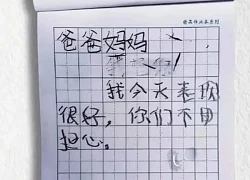 爸爸妈妈
我今天表现
很好，你们不用
担心。